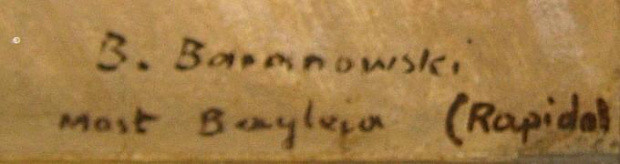 B. Baranowski
Most Bayleja (Rapido)